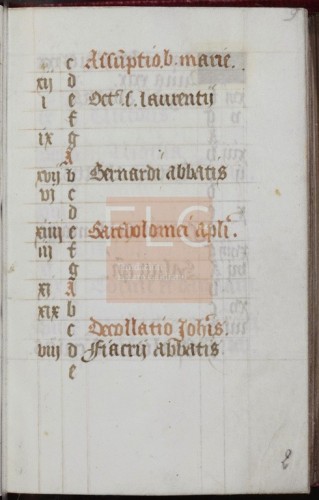 c Assūptio.b.marie.
xij d
i e Oct. s. laurentij
f
ix g
A
xvij b Bernardi abbatis
vj c
d
xiiij e Bartholomei apli.
iij f
g
xj A
xix b
c Decollatio Joh'is
viij d Fiacrij abbatis
e
FLG